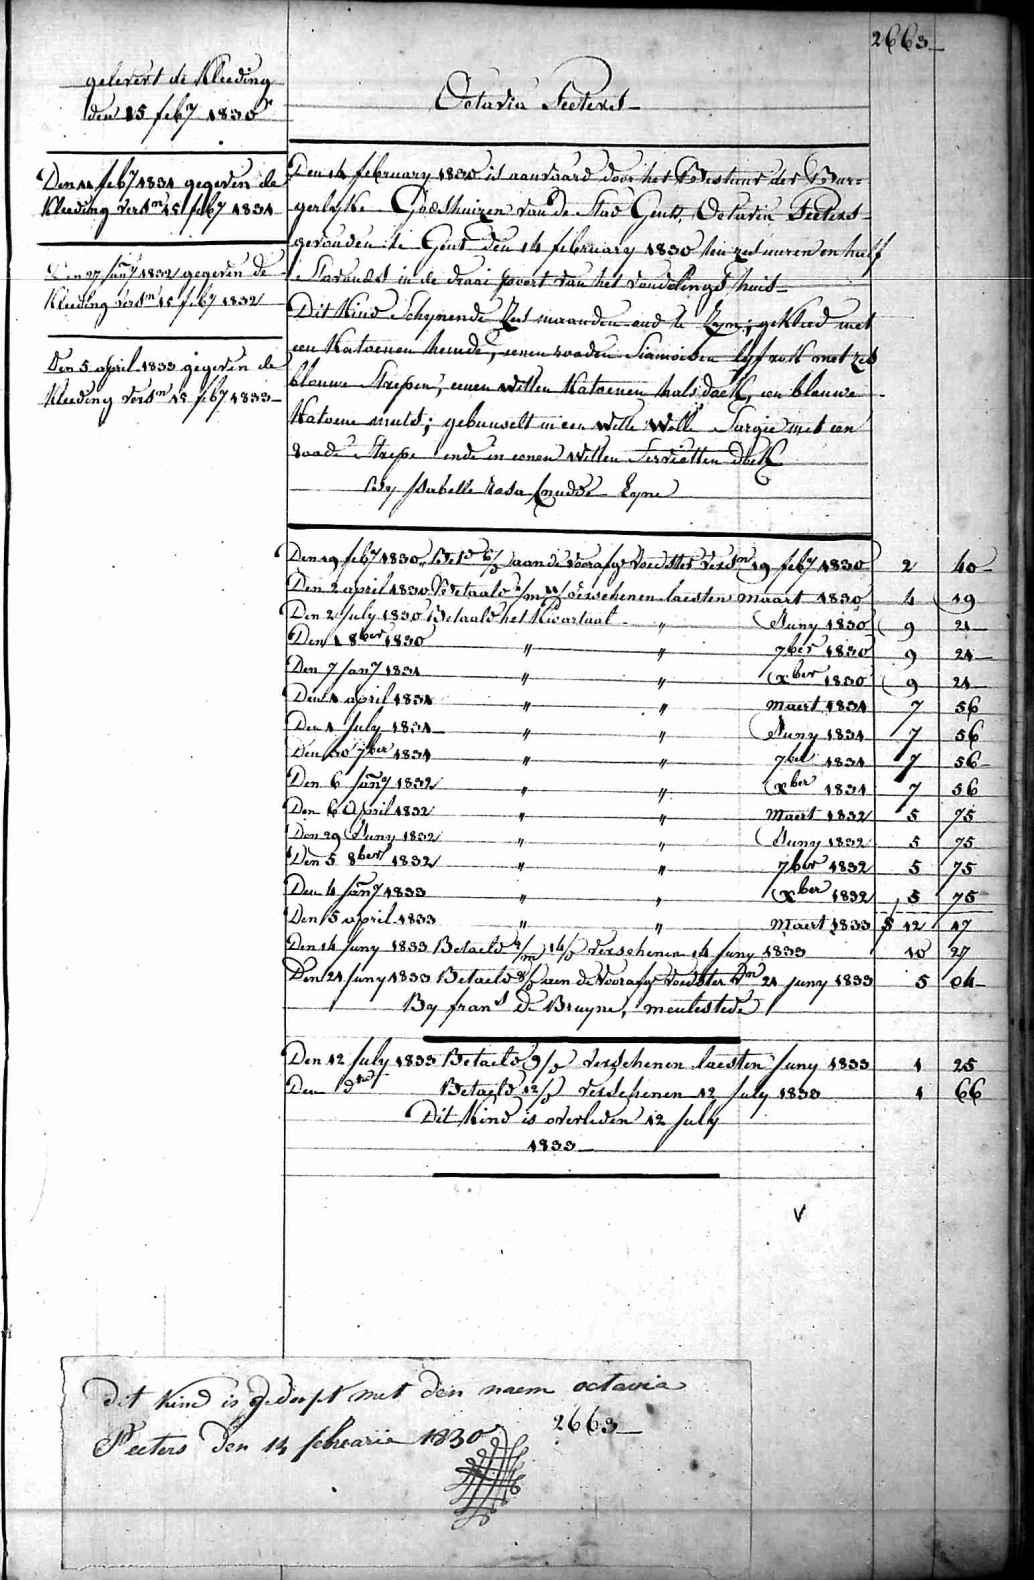 2663
gelevert de Kleeding
den 15 feby 1830
Octavia Peeters
Den 11 feby 1831 gegeven de
Kleeding versn 15 feby 1831
Den 27 Jany 1832 gegeven de
Kleeding versn 15 feby 1832
Den 5 april 1833 gegeven de
Kleeding versn 15 feby 1833
Den 14 february 1830 is aanvaard door het Bestuur der Bur=
gerlyke Godshuizen van de Stad Gend, Octavia Peeters
gevonden te Gent den 14 february 1830 ten zes uuren en half
s'avonds in de draai poort van het vondelings huis
Dit Kind schynende zes maanden oud te zyn; gekleed met
een Katoenen hemde, eenen rooden Siamoisen lyfrok met
blauwe strepen, eenen witten Katoenen halsdoek, een blauwe
Katoene muts; gebunselt in een witte Wolle Sargie met een
roode strepe ende in eenen witten Servietten doek
By Isabelle Rosa Eyne
Den 19 feby 1830 aan de voorafge voedster versn 19 feby 1830 2 40
Den 2 april 1830 Betaald verschenen laesten maart 1830 4 19
Den 2 July 1830 Betaald het Kwartaal " Juny 1830 9 21
Den 1 8ber 1830 " " 7ber 1830 9 21
Den 7 Jany 1831 " " xber 1830 9 21
Den 1 april 1831 " " maert 1831 7 56
Den 1 July 1831 " " Juny 1831 7 56
Den 30 7ber 1831 " " 7ber 1831 7 56
Den 6 Jany 1832 " " xber 1831 7 56
Den 6 April 1832 " " Maert 1832 5 75
Den 29 Juny 1832 " " Juny 1832 5 75
Den 5 8ber 1832 " " 7ber 1832 5 75
Den 4 Jany 1833 " " xber 1832 5 75
Den 5 april 1833 " " Maert 1833 12 47
Den 14 Juny 1833 Betaeld verschenen 14 Juny 1833 10 27
Den 21 Juny 1833 Betaeld aen de voorafge voedster 21 Juny 1833 5 04
By frans De Bruyne, meulestede
Den 12 July 1833 Betaeld verschenen laesten Juny 1833 1 25
Den dto Betaeld verschenen 12 July 1833 1 66
Dit Kind is overleden 12 July
1833
V
dit kind is gedoopt met den naem octavia
Peeters den 14 febrearie 1830 2663